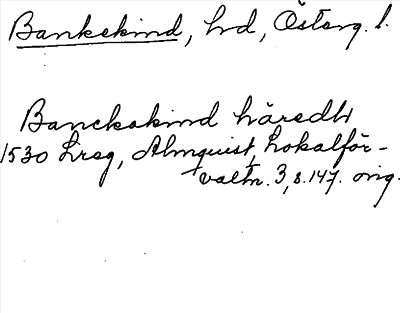 Bankekind, hd, Österg. l.
Banckakind häredh
1530 Lreg, Almquist, Lokalför-
valtn. 3, s. 147. orig.